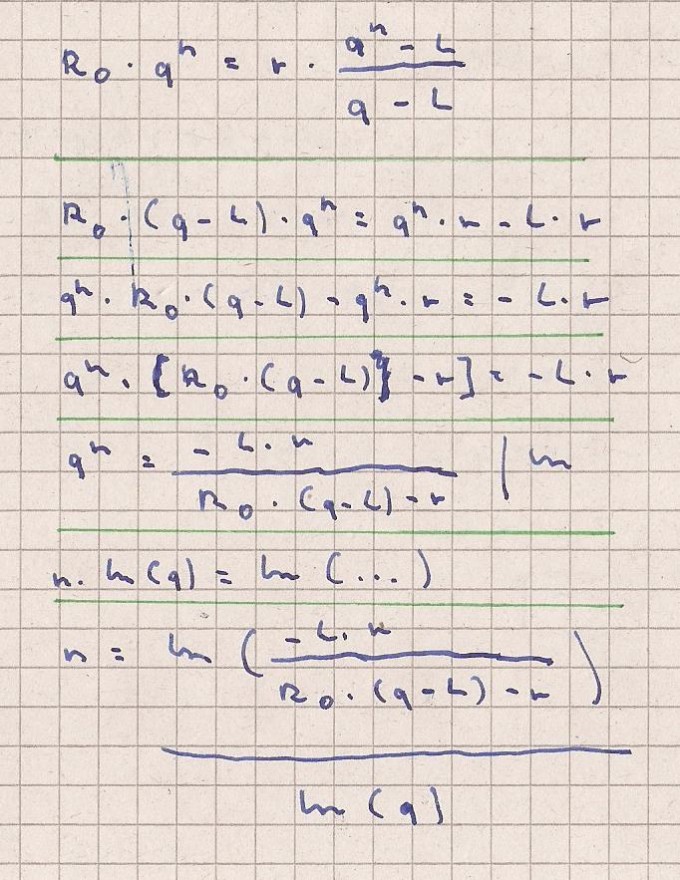 R₀ · qⁿ = r · (qⁿ - L) / (q - L)
R₀ · (q - L) · qⁿ = qⁿ · r - L · r
qⁿ · R₀ · (q - L) - qⁿ · r = - L · r
qⁿ · [R₀ · (q - L)} - r] = - L · r
qⁿ = (- L · r) / (R₀ · (q - L) - r) | ln
n · ln (q) = ln (...)
n = ln ((- L · r) / (R₀ · (q - L) - r)) / ln (q)